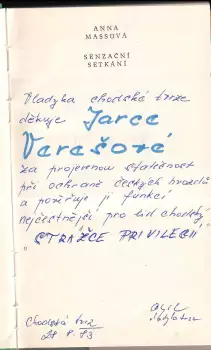 ANNA
MASSOVÁ
SENZAČNÍ
SETKÁNÍ
Vladyka chodské tvrze
děkuje Jarce
Verešové
za projevenou statečnost
při ochraně českých hvozdů
a pověřuje ji funkcí
nejčestnější pro lid chodský
„STRÁŽCE PRIVILEGIÍ"
Chodská tvrz